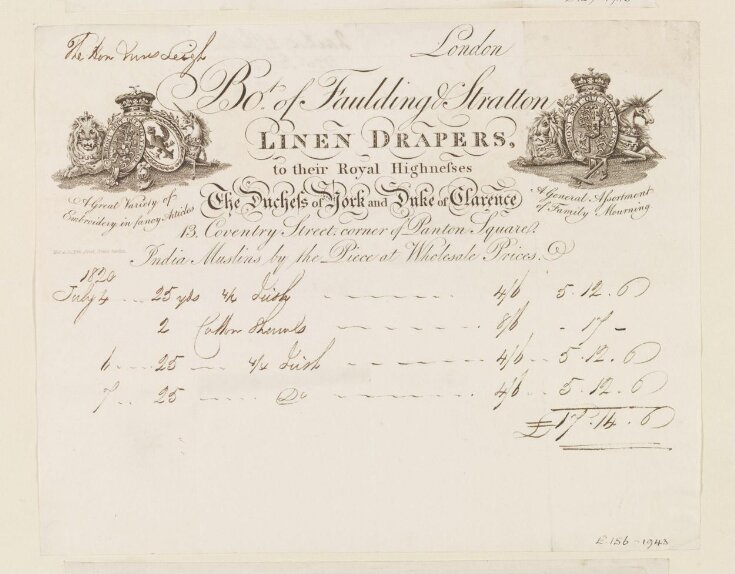 London
The Hon Mrs Leigh
Bot. of Faulding & Stratton
LINEN DRAPERS,
to their Royal Highneſses
The Ducheſs of York and Duke of Clarence
A Great Variety of
Embroidery in fancy Articles
A General Aſsortment
of Family Mourning
13, Coventry Street, corner of Panton Square.
India Muslins by the Piece at Wholesale Prices.
1820
July 4 25 yds 4/4 Irish 4/6 5.12.6
2 Cotton Shawls 8/6 - 17 -
6 25 4/4 Irish 4/6 5.12.6
7 25 Do 4/6 5.12.6
£17.14.6
E.156-1943